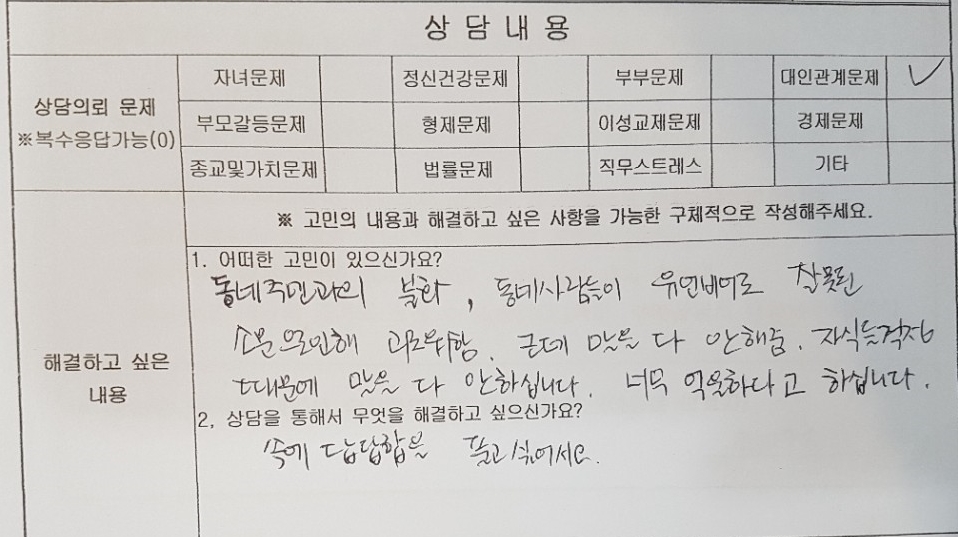 상 담 내 용
자녀문제 정신건강문제 부부문제 대인관계문제 ✓
상담의뢰 문제
※복수응답가능(0)
부모갈등문제 형제문제 이성교제문제 경제문제
종교및가치문제 법률문제 직무스트레스 기타
※ 고민의 내용과 해결하고 싶은 사항을 가능한 구체적으로 작성해주세요.
해결하고 싶은
내용
1. 어떠한 고민이 있으신가요?
동네주민과의 불화, 동네사람들이 유언비어로 잘못된
소문으로인해 괴로워함. 근데 말을 다 안해줌. 자식들걱정
때문에 말을 다 안하십니다. 너무 억울하다고 하십니다.
2, 상담을 통해서 무엇을 해결하고 싶으신가요?
속에 답답함을 풀고싶어서요.